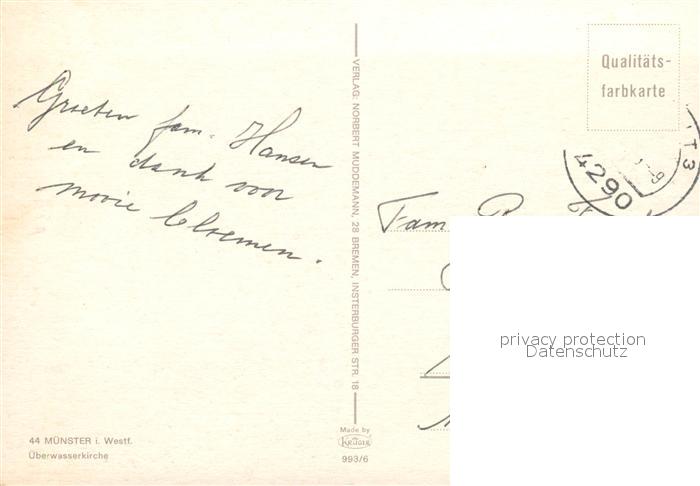 Groeten fam. Hansen
en dank voor
mooie bloemen.
44 MÜNSTER i. Westf.
Überwasserkirche
VERLAG: NORBERT MUDDEMANN, 28 BREMEN, INSTERBURGER STR. 18
Made by
KRÜGER
993/6
Qualitäts-
farbkarte
4290
Fam
privacy protection
Datenschutz